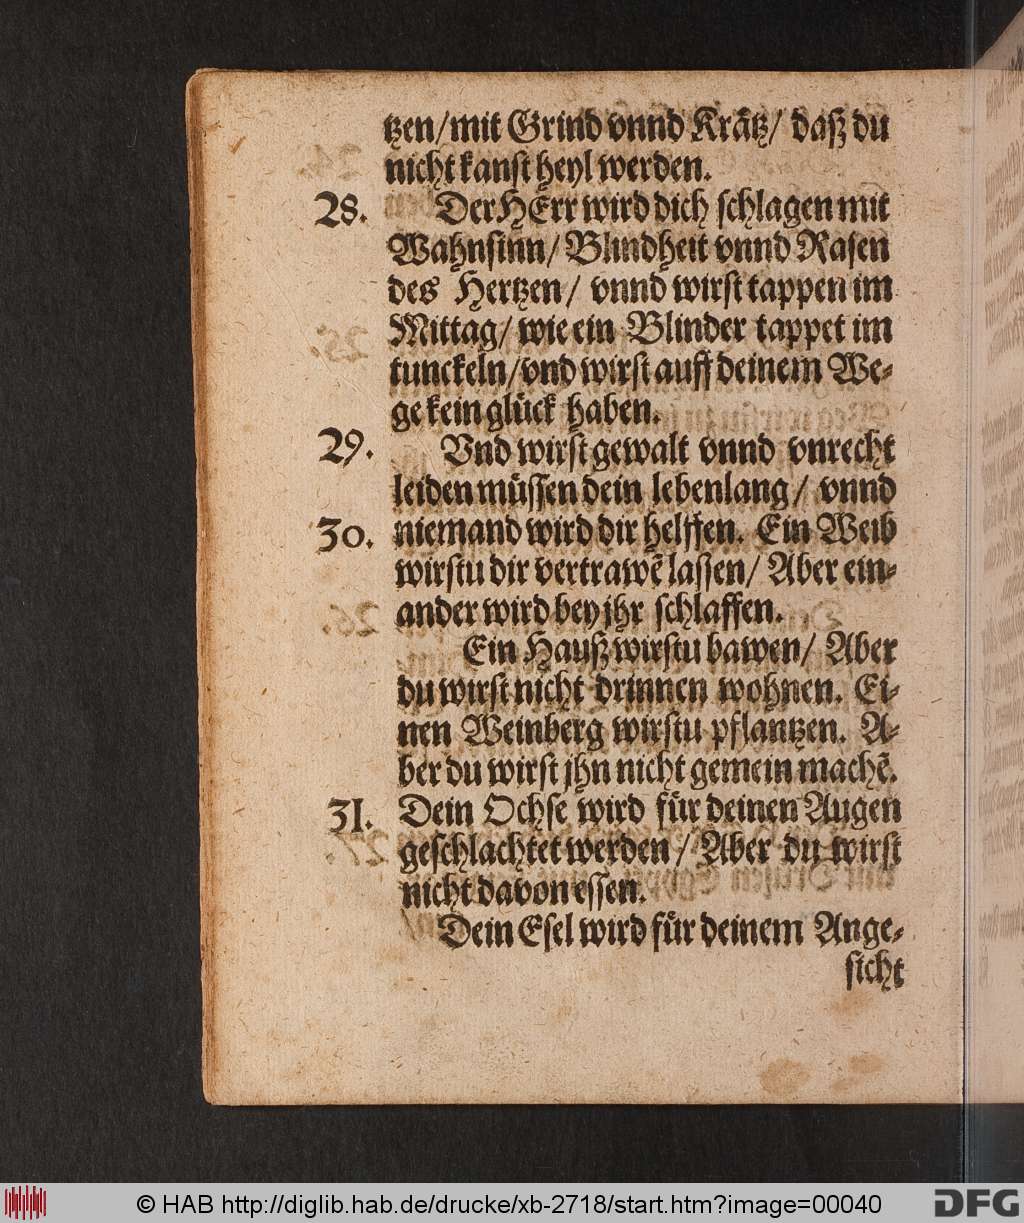 tzen/mit Grind vnnd Kraͤtz/ daß du
nicht kanst heyl werden.
28. Der HErr wird dich schlagen mit
Wahnsinn/ Blindheit vnnd Rasen
des Hertzen/ vnnd wirst tappen im
Mittag/ wie ein Blinder tappet im
tunckeln/vnd wirst auff deinem We-
ge kein gluͤck haben.
29. Vnd wirst gewalt vnnd vnrecht
leiden muͤssen dein lebenlang/ vnnd
30. niemand wird dir helffen. Ein Weib
wirstu dir vertrawẽ lassen/ Aber ein-
ander wird bey jhr schlaffen.
Ein Hauß wirstu bawen/ Aber
du wirst nicht drinnen wohnen. Ei-
nen Weinberg wirstu pflantzen. A-
ber du wirst jhn nicht gemein machẽ.
31. Dein Ochse wird fuͤr deinen Augen
geschlachtet werden/ Aber du wirst
nicht davon essen.
Dein Esel wird fuͤr deinem Ange-
sicht
© HAB http://diglib.hab.de/drucke/xb-2718/start.htm?image=00040
DFG